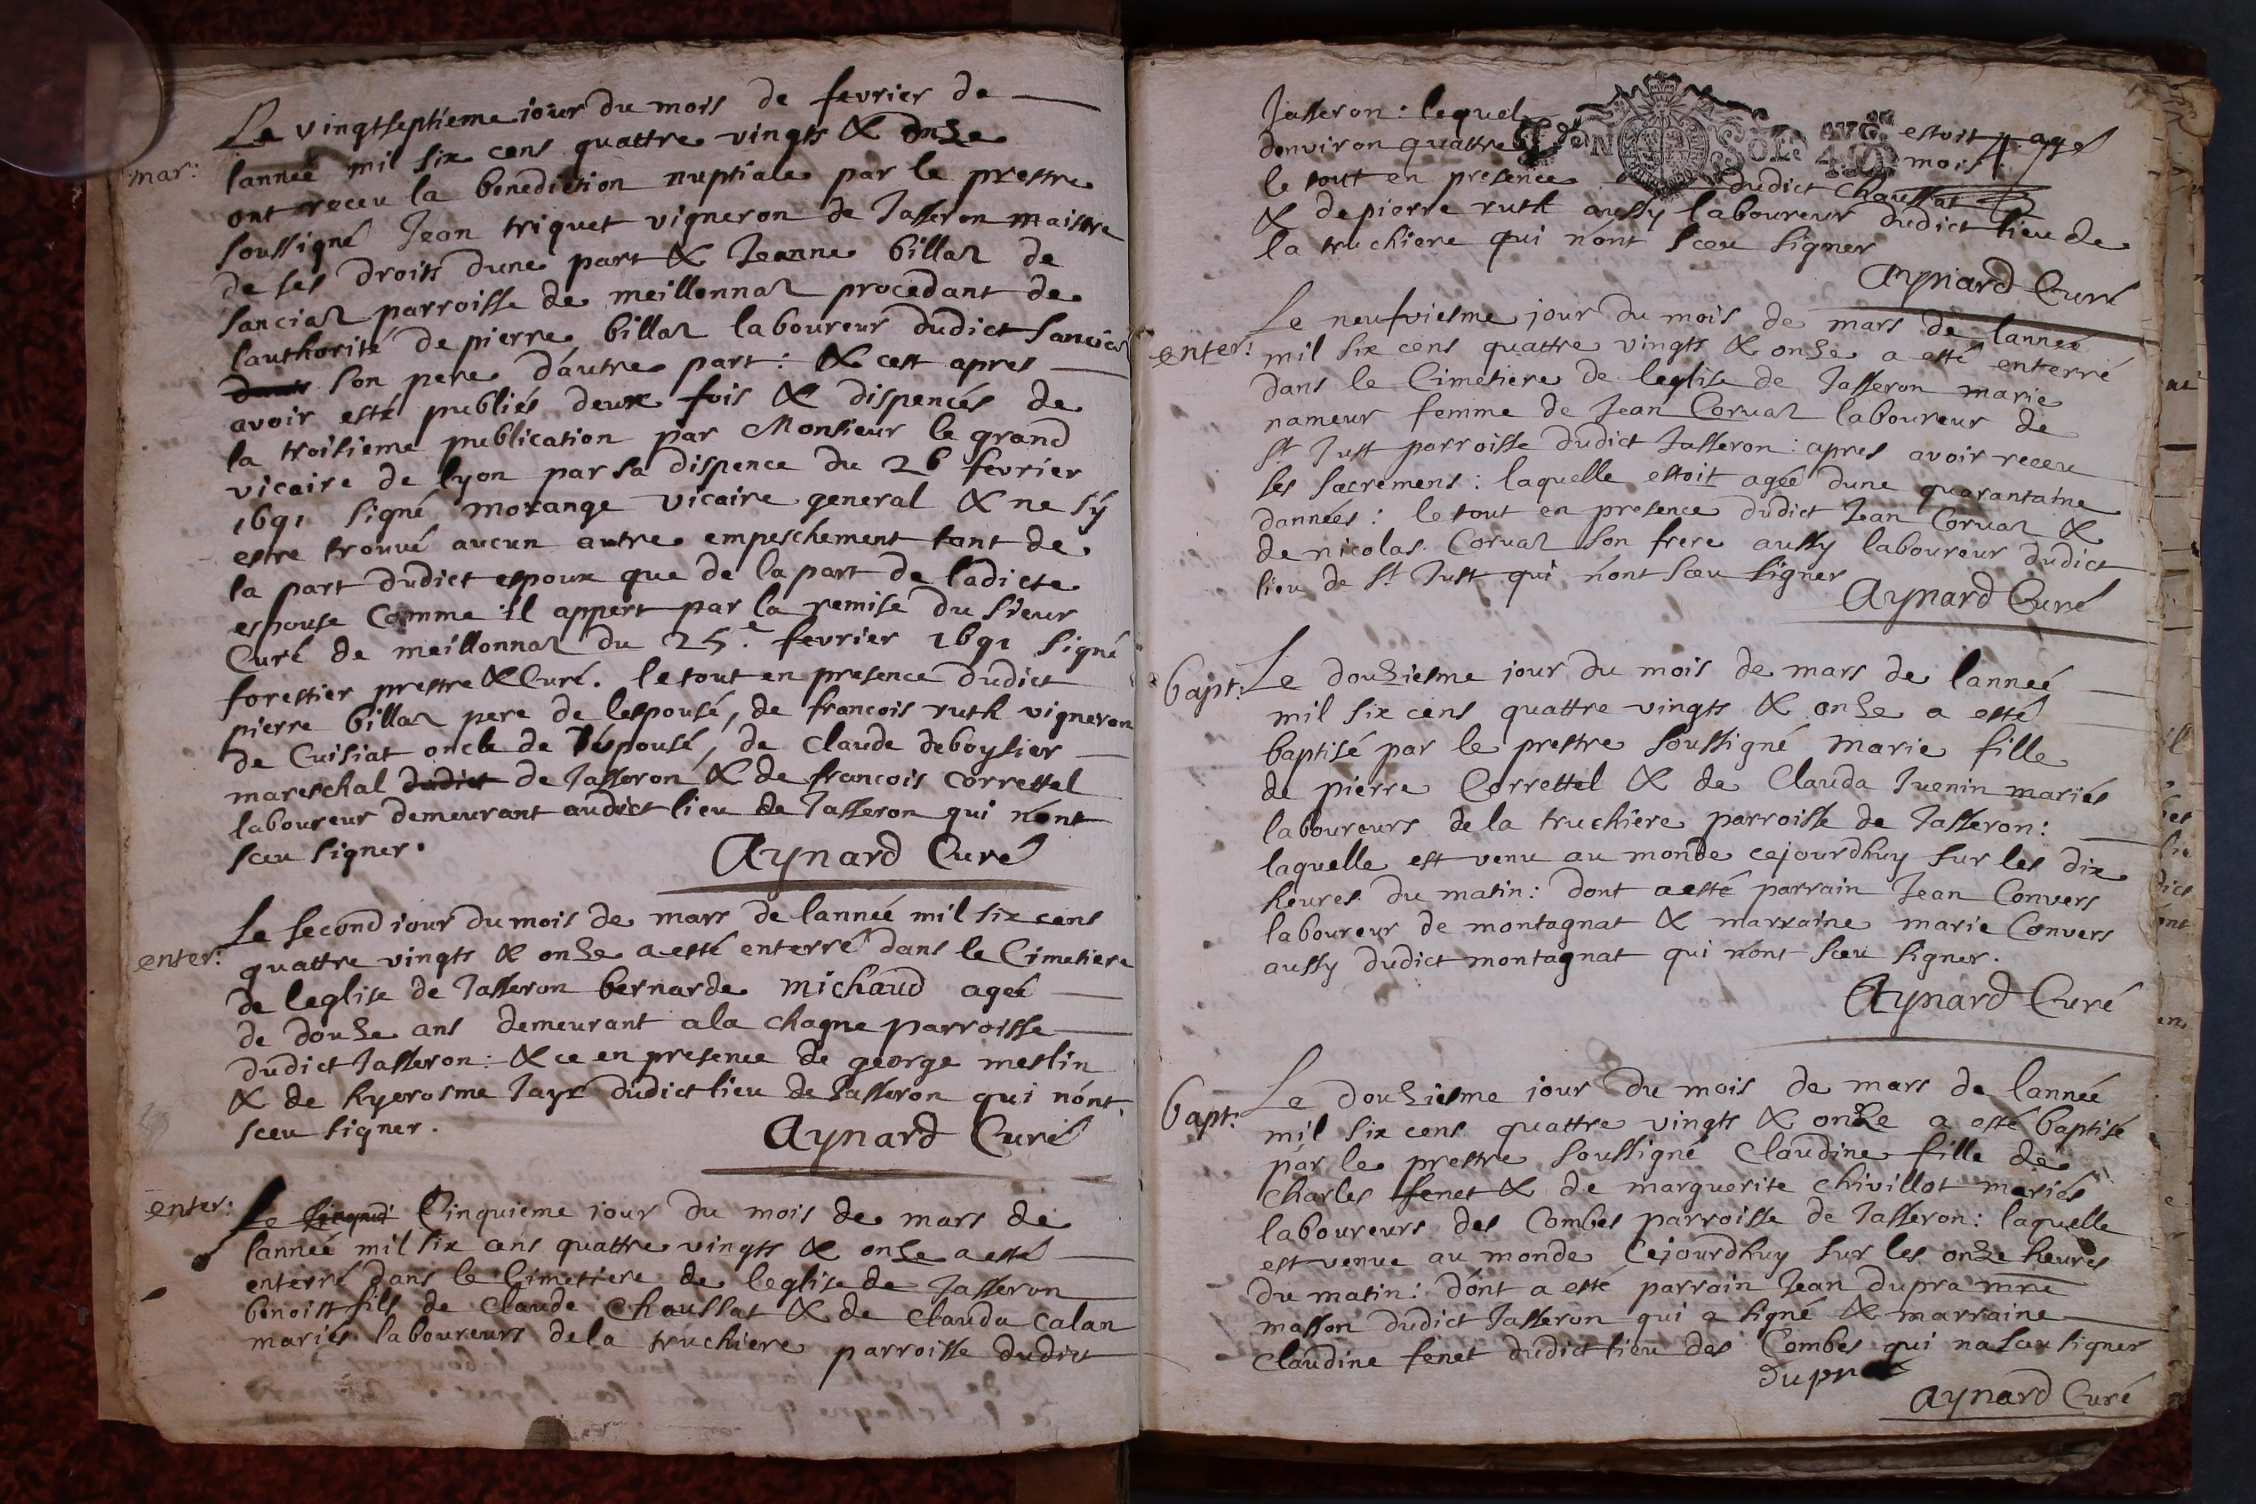 mar:
Le vingtseptieme jour du mois de fevrier de
lanneé mil six cens quattre vingts & onze
ont receu la benediction nuptiale par le prestre
soussigné Jean triquet vigneron de Jasseron maistre
de ses droits dune part & Jeanne billaz de
Sanciaz parroisse de meillonnaz procedant de
lauthorité de pierre billaz laboureur dudict Sanciaz
son pere dáutre part: & cest apres
avoir esté publiés deux fois & dispencés de
la troisieme publication par Monsieur le grand
vicaire de lyon par sa dispence du 26 fevrier
1691 signé morange vicaire general & ne sý
estre trouvé aucun autre empeschement tant de
la part dudict espoux que de la part de ladicte
espouse Comme il appert par la remise du sieur
Curé de meillonnaz du 25.e fevrier 1691 signé
forestier prestre & Curé. le tout en presence dudict
pierre billaz pere de lespousé, de francois ruth vigneron
de Cuisiat oncle de léspousé, de claude deboysier
mareschal dudict de Jasseron & de francois correttel
laboureur demeurant audict lieu de Jasseron qui nónt
sceu signer.
Aynard Curé
enter:
Le second jour du mois de mars de lanneé mil six cens
quattre vingts & onze a esté enterré dans le Cimetiere
de leglise de Jasseron bernarde michaud ageé
de douze ans demeurant a la chagne parroisse
dudict Jasseron: & ce en presence de george meslin
& de hyerosme Jayr dudict lieu de Jasseron qui nónt
sceu signer.
Aynard Curé
enter:
Le Cinquieme jour du mois de mars de
lanneé mil six cens quattre vingts & onze a esté
enterré dans le Cimetiere de leglise de Jasseron
benoist fils de claude Chaussat & de clauda Calan
mariés laboureurs de la truchiere parroisse dudict
Jasseron: lequel estoit agé
denviron quattre mois:
le tout en presence dudict Chaussat
& de pierre ruth aussy laboureur dudict lieu de
la truchiere qui nónt sceu signer
Aynard Curé
enter:
Le neufviesme jour du mois de mars de lanneé
mil six cens quattre vingts & onze a esté enterré
dans le Cimetiere de leglise de Jasseron marie
nameur femme de Jean Corvaz laboureur de
st Just parroisse dudict Jasseron: apres avoir receu
ses sacremens: laquelle estoit ageé dune quarantaine
dannées: le tout en presence dudict Jean Corvaz &
de nicolas Corvaz son frere aussy laboureur dudict
lieu de st Just qui nónt sceu signer
Aynard Curé
bapt:
Le douziesme jour du mois de mars de lanneé
mil six cens quattre vingts & onze a esté
baptisé par le prestre soussigné marie fille
de pierre Correttel & de Clauda Juenin mariés
laboureurs de la truchiere parroisse de Jasseron:
laquelle est venu au monde cejourdhuy sur les dix
heures du matin: dont a esté parrain Jean Convers
laboureur de montagnat & marraine marie Convers
aussy dudict montagnat qui nónt sceu signer.
Aynard Curé
bapt:
Le douziesme jour du mois de mars de lanneé
mil six cens quattre vingts & onze a esté baptisé
par le prestre soussigné Claudine fille de
Charles fenet & de marguerite chivillot mariés
laboureurs des Combes parroisse de Jasseron: laquelle
est venue au monde Cejourdhuy sur les onze heures
du matin: dónt a esté parrain Jean dupra mre
masson dudict Jasseron qui a signé & marraine
Claudine fenet dudict lieu des Combes qui na sceu signer
Aynard Curé